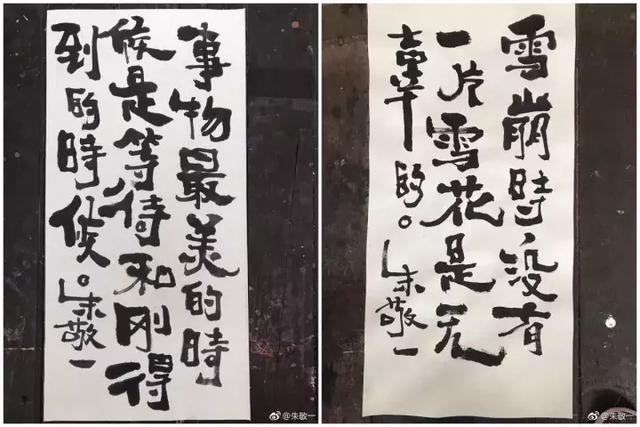 事物最美的時
候是等待和刚得
到的時候。朱敬一
@朱敬一
雪崩時，没有
一片雪花是无
辜的。朱敬一
@朱敬一